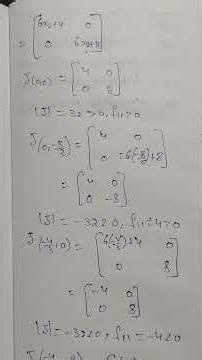 = [6x+4 0
0 6y+8]
J(0,0) = [4 0
0 8]
|J| = 32 > 0, f11 > 0
J(0, -8/3) = [4 0
0 6(-8/3)+8]
= [4 0
0 -8]
|J| = -32 < 0, f11 = 4 > 0
J(-4/3, 0) = [6(-4/3)+4 0
0 8]
= [-4 0
0 8]
|J| = -32 < 0, f11 = -4 < 0